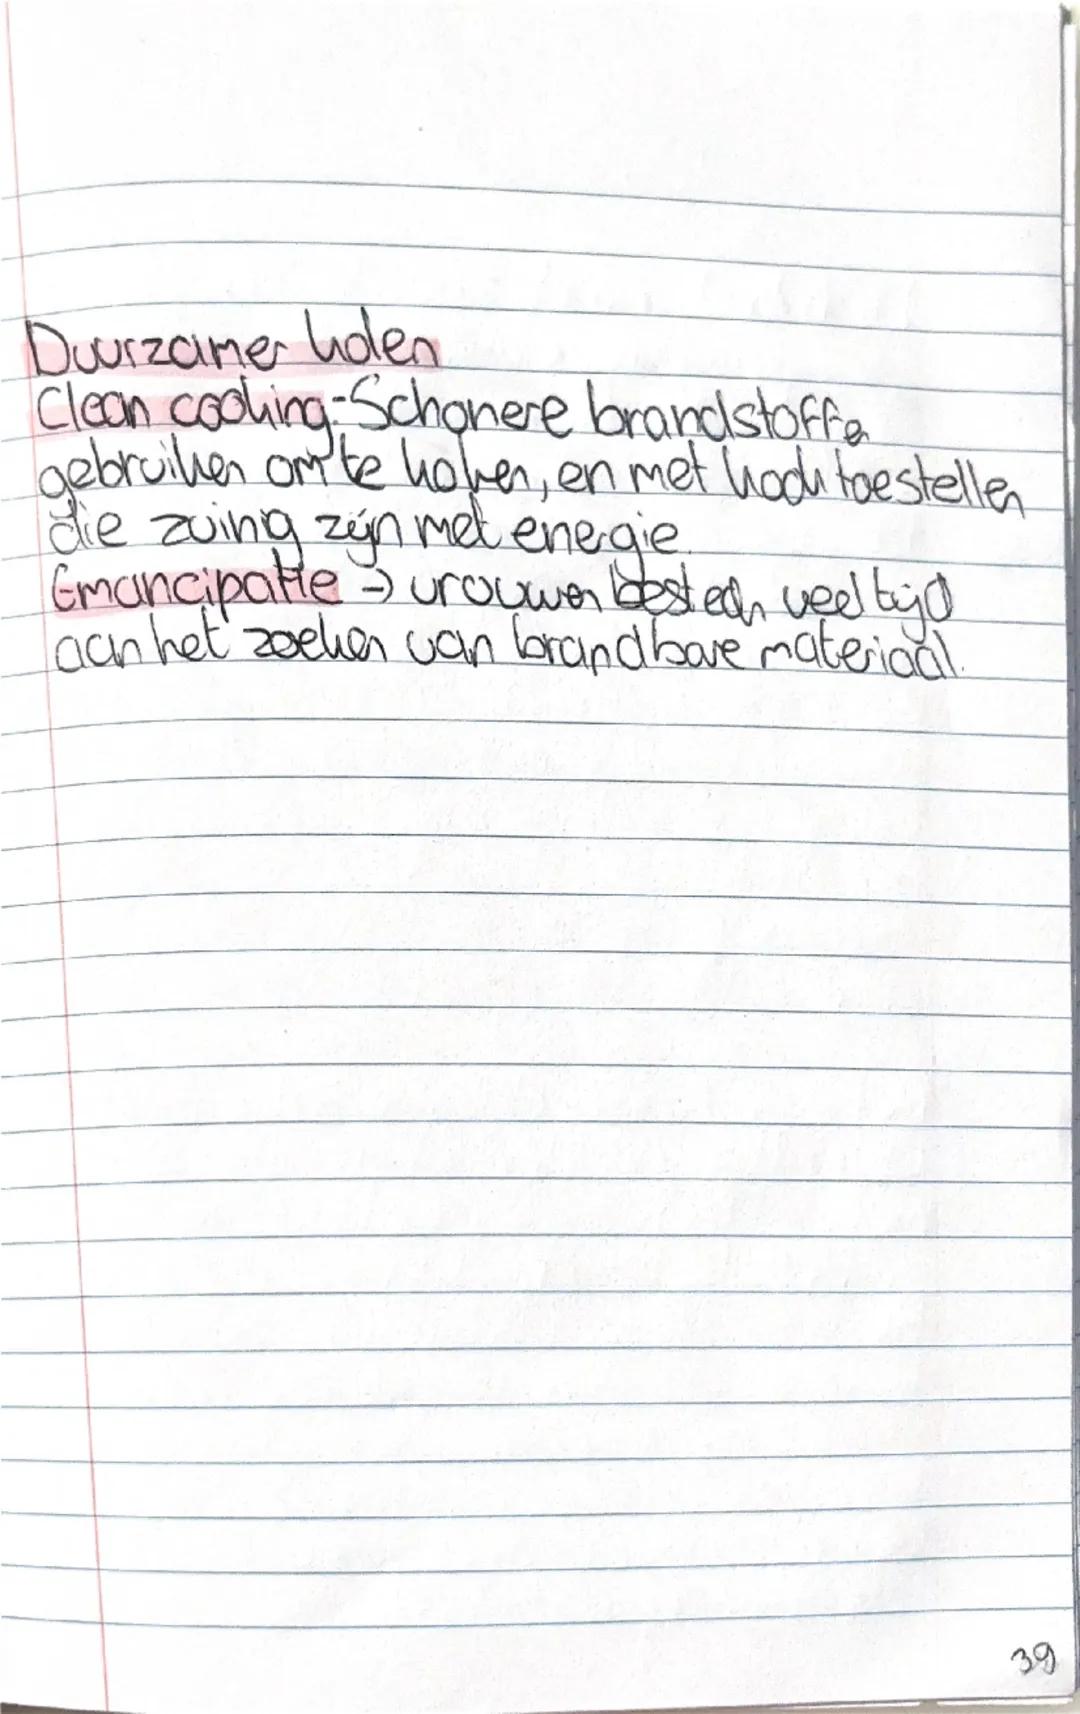 Duurzamer koken
Clean cooking:-Schonere brandstoffen
gebruiken om te koken, en met kook toestellen
die zuinig zijn met energie.
Emancipatie → vrouwen besteden veel tijd
aan het zoeken van brandbare materiaal.
39